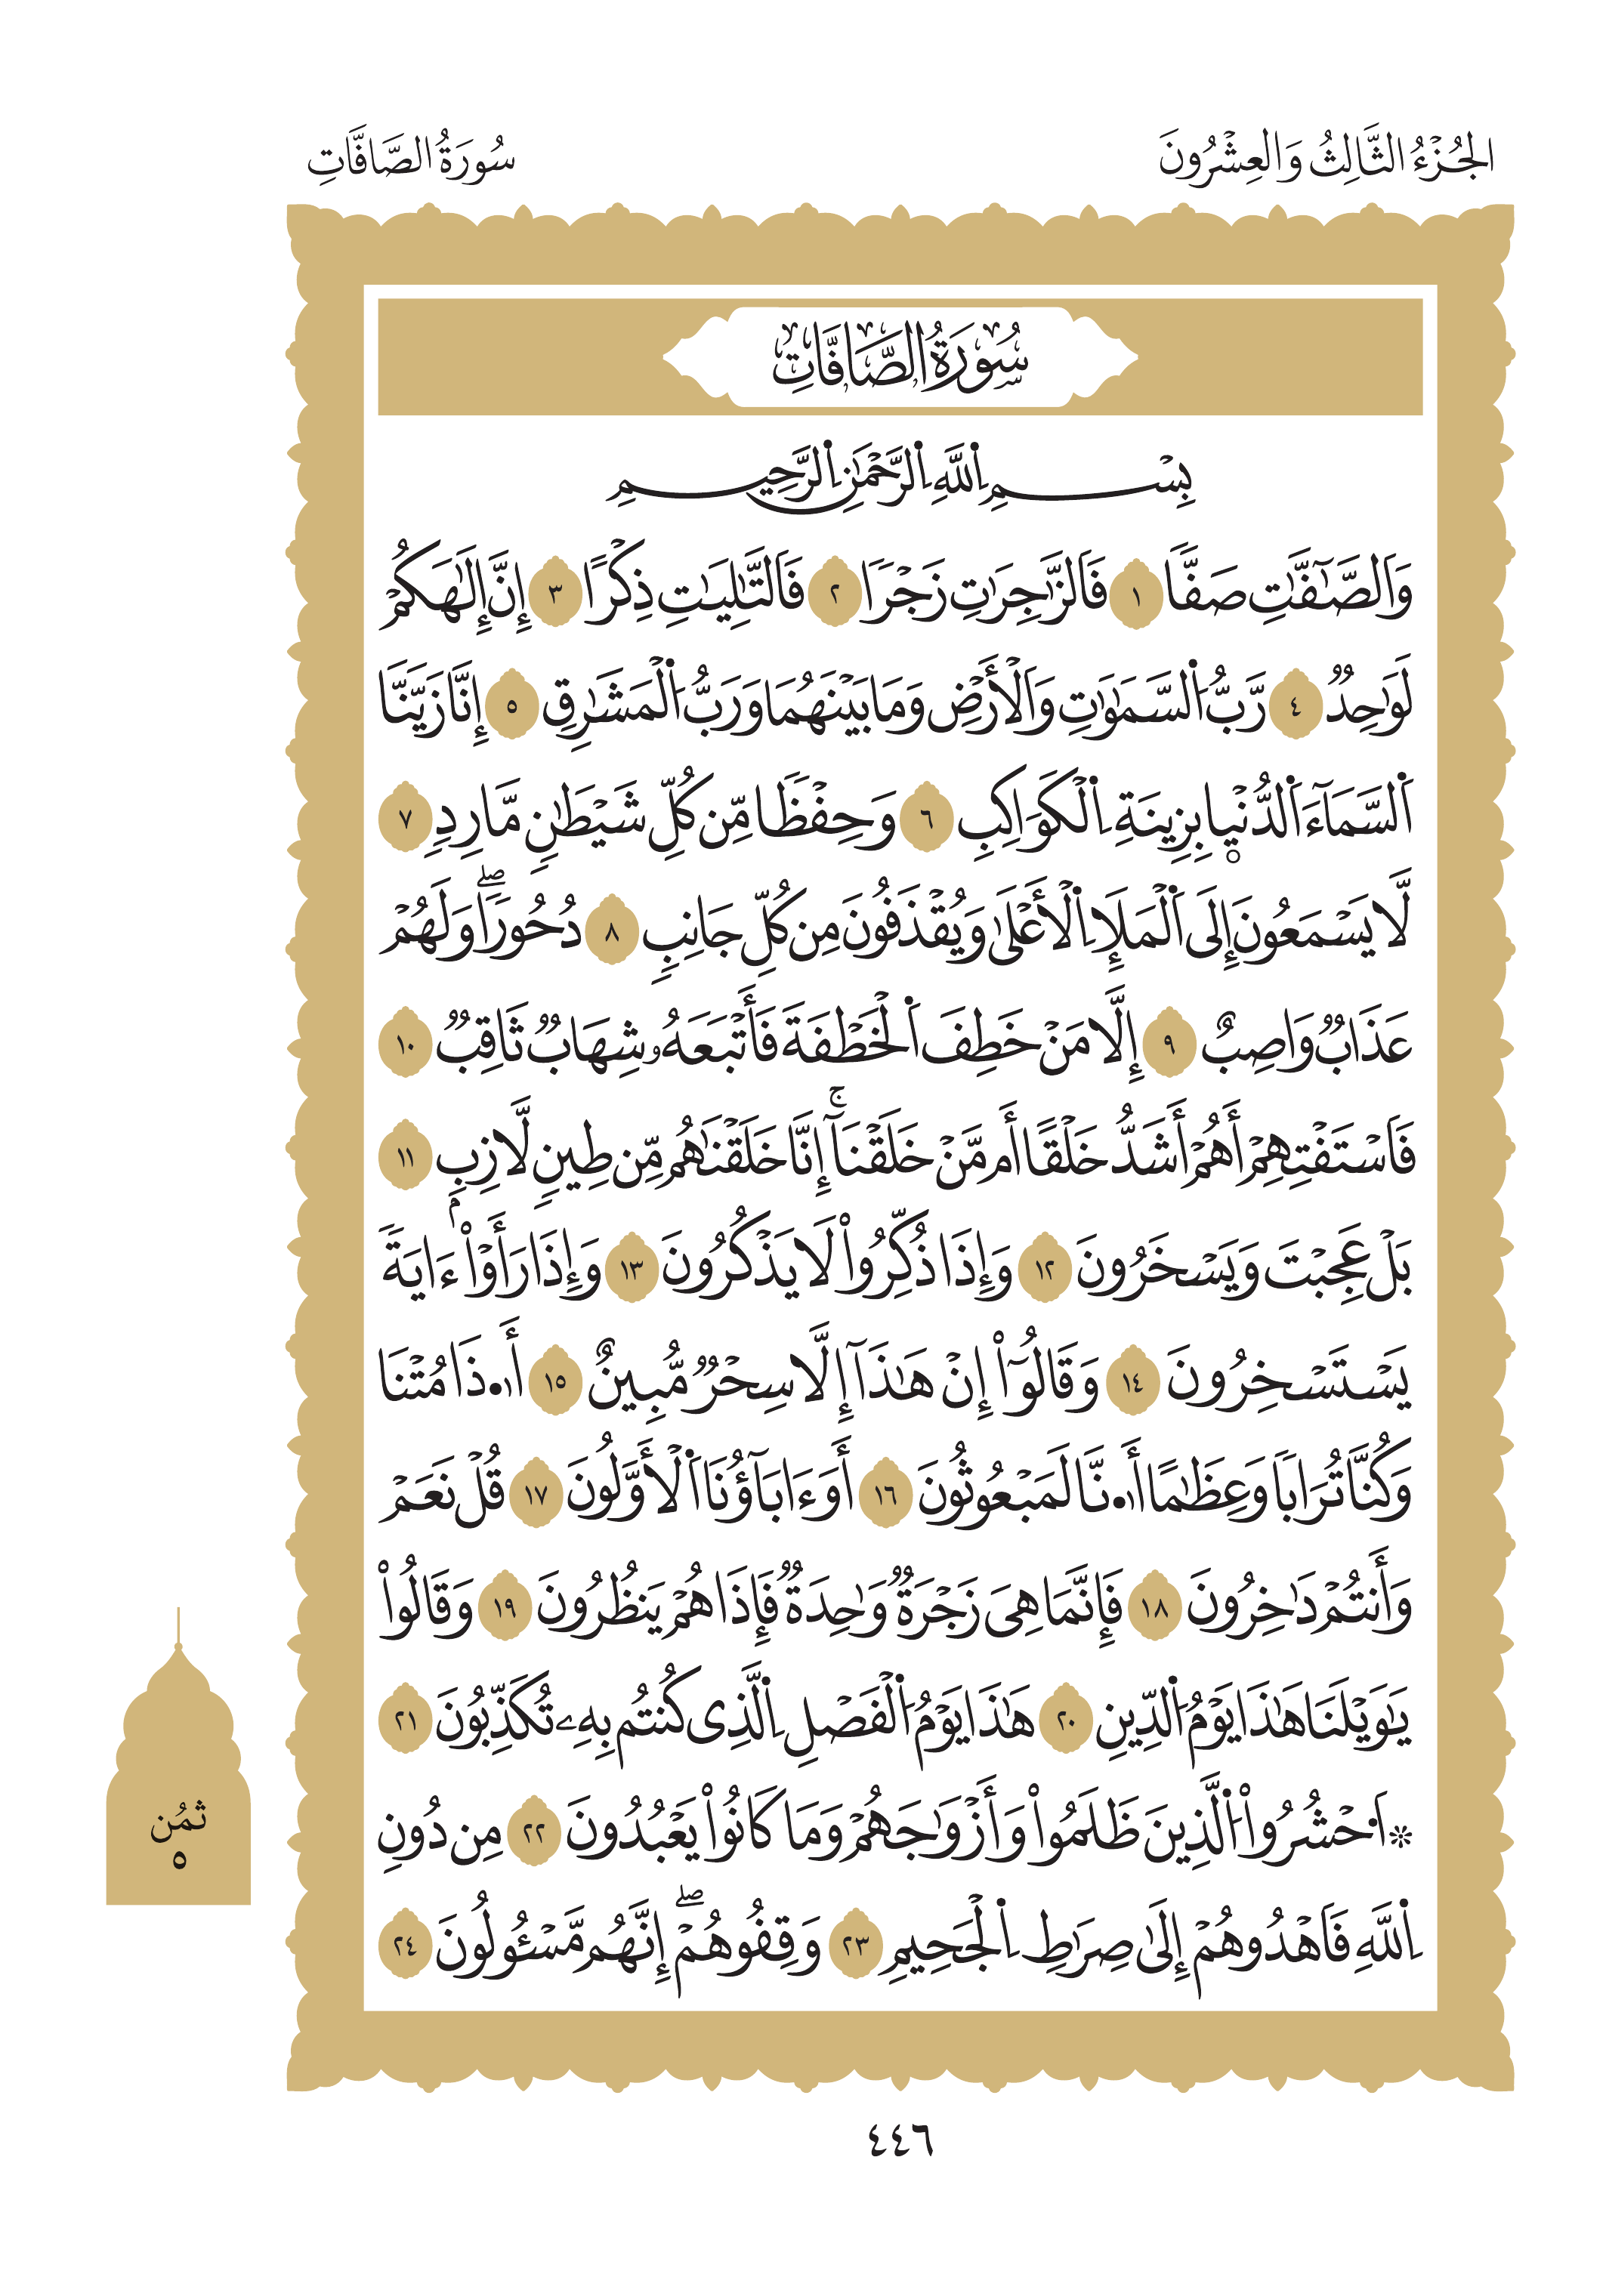 الجُزْءُ الثَّالِثُ وَالعِشْرُونَ
سُورَةُ الصَّافَّاتِ
سُورَةُ الصَّافَّاتِ
بِسْمِ اِ۬للَّهِ اِ۬لرَّحْمَٰنِ اِ۬لرَّحِيمِ
وَالصَّٰٓفَّٰتِ صَفّٗا ١ فَالزَّٰجِرَٰتِ زَجْرٗا ٢ فَالتَّٰلِيَٰتِ ذِكْرًا ٣ إِنَّ إِلَٰهَكُمْ
لَوَٰحِدٞ ٤ رَّبُّ اُ۬لسَّمَٰوَٰتِ وَالْأَرْضِ وَمَا بَيْنَهُمَا وَرَبُّ اُ۬لْمَشَٰرِقِ ٥ إِنَّا زَيَّنَّا
اَ۬لسَّمَآءَ اَ۬لدُّنْيِا بِزِينَةِ اِ۬لْكَوَاكِبِ ٦ وَحِفْظٗا مِّن كُلِّ شَيْطَٰنٖ مَّارِدٖ ٧
لَّا يَسْمَعُونَ إِلَى اَ۬لْمَلَإِ اِ۬لْأَعْلَىٰ وَيُقْذَفُونَ مِن كُلِّ جَانِبٖ ٨ دُحُورٗاۖ وَلَهُمْ
عَذَابٞ وَاصِبٌ ٩ إِلَّا مَنْ خَطِفَ اَ۬لْخَطْفَةَ فَأَتْبَعَهُۥ شِهَابٞ ثَاقِبٞ ١٠
فَاسْتَفْتِهِمْ أَهُمْ أَشَدُّ خَلْقًا أَم مَّنْ خَلَقْنَآۚ إِنَّا خَلَقْنَٰهُم مِّن طِينٖ لَّازِبِۭ ١١
بَلْ عَجِبْتَ وَيَسْخَرُونَ ١٢ وَإِذَا ذُكِّرُواْ لَا يَذْكُرُونَ ١٣ وَإِذَا رَأَوْاْ ءَايَةٗ
يَسْتَسْخِرُونَ ١٤ وَقَالُوٓاْ إِنْ هَٰذَآ إِلَّا سِحْرٞ مُّبِينٌ ١٥ أَا۟.ذَا مُتْنَا
وَكُنَّا تُرَابٗا وَعِظَٰمًا أَا۟.نَّا لَمَبْعُوثُونَ ١٦ أَوَءَابَآؤُنَا اَ۬لْأَوَّلُونَ ١٧ قُلْ نَعَمْ
وَأَنتُمْ دَٰخِرُونَ ١٨ فَإِنَّمَا هِيَ زَجْرَةٞ وَٰحِدَةٞ فَإِذَا هُمْ يَنظُرُونَ ١٩ وَقَالُواْ
يَٰوَيْلَنَا هَٰذَا يَوْمُ اُ۬لدِّينِ ٢٠ هَٰذَا يَوْمُ اُ۬لْفَصْلِ اِ۬لَّذِي كُنتُم بِهِۦ تُكَذِّبُونَ ٢١
۞ اَ۟حْشُرُواْ اُ۬لَّذِينَ ظَلَمُواْ وَأَزْوَٰجَهُمْ وَمَا كَانُواْ يَعْبُدُونَ ٢٢ مِن دُونِ
اِ۬للَّهِ فَاهْدُوهُمْ إِلَىٰ صِرَٰطِ اِ۬لْجَحِيمِ ٢٣ وَقِفُوهُمْۖ إِنَّهُم مَّسْـُٔولُونَ ٢٤
ثمُن
٥
٤٤٦